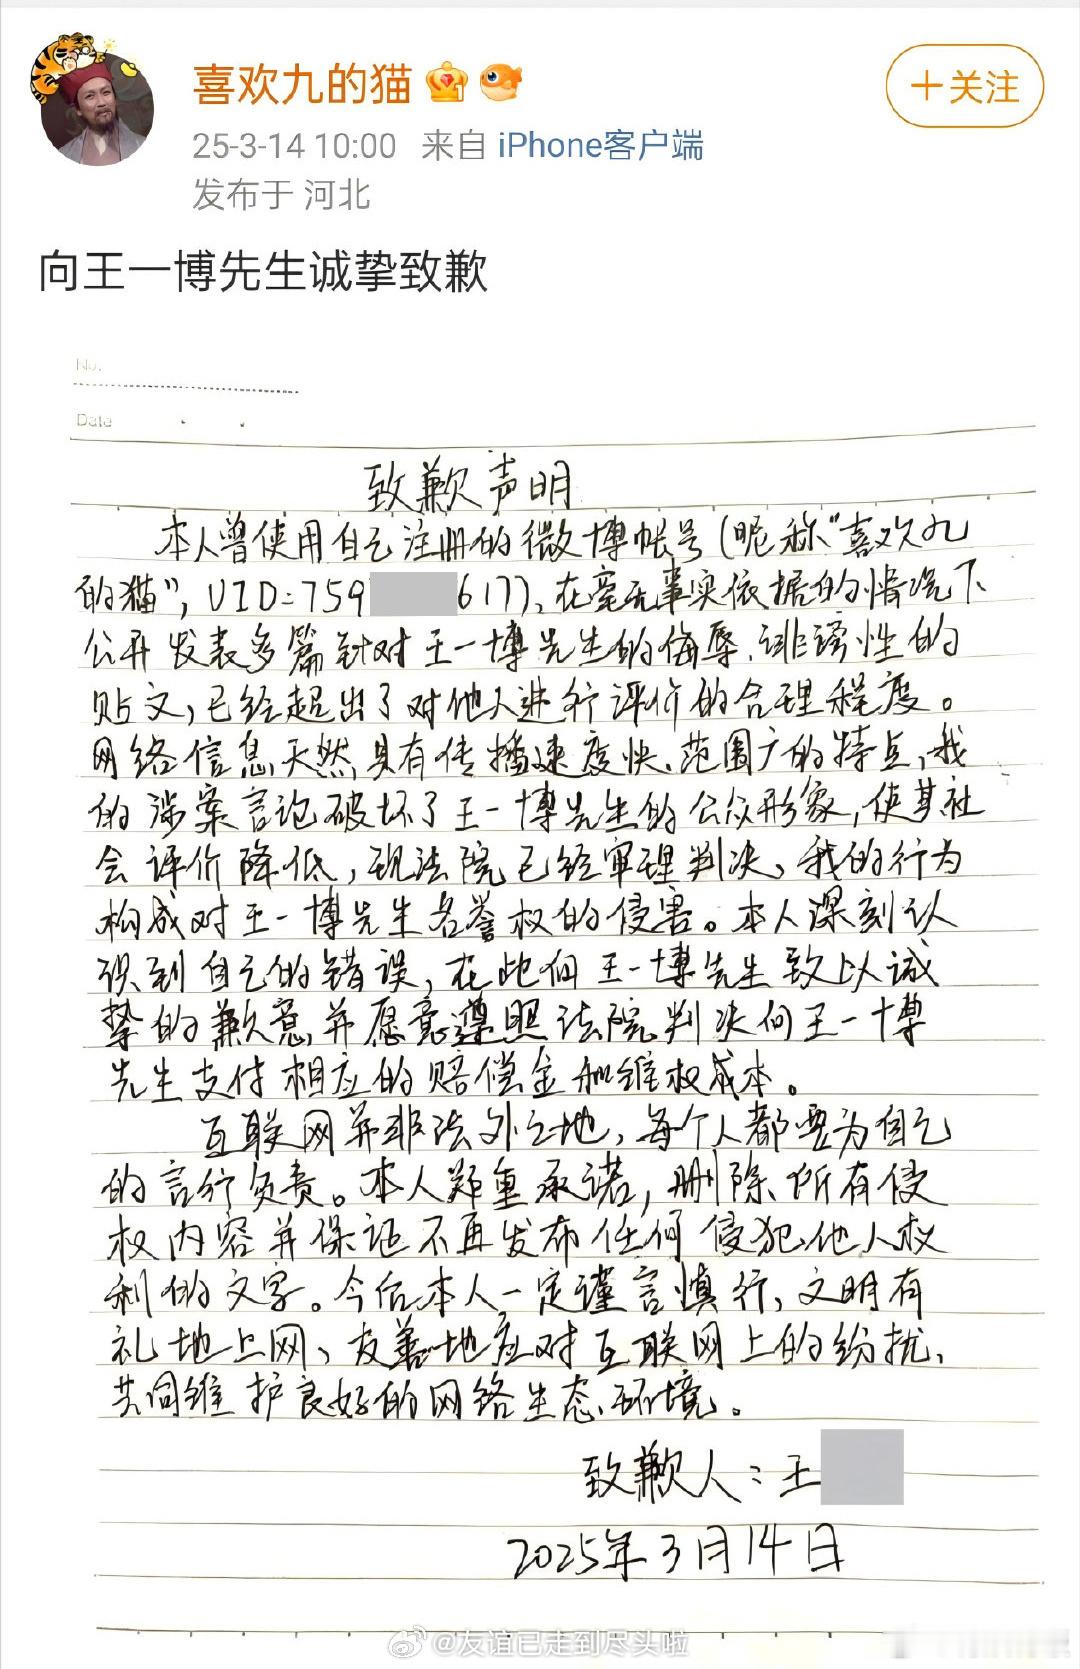 喜欢九的猫
+关注
25-3-14 10:00 来自 iPhone客户端
发布于 河北
向王一博先生诚挚致歉
No.
Date
致歉声明
本人曾使用自己注册的微博帐号(昵称“喜欢九
的猫”,UID:759 617),在毫无事实依据的情况下
公开发表多篇针对王一博先生的侮辱、诽谤性的
贴文,已经超出了对他人进行评价的合理程度。
网络信息天然具有传播速度快、范围广的特点,我
的涉案言论破坏了王一博先生的公众形象,使其社
会评价降低,现法院已经审理判决,我的行为
构成对王一博先生名誉权的侵害。本人深刻认
识到自己的错误,在此向王一博先生致以诚
挚的歉意,并愿意遵照法院判决向王一博
先生支付相应的赔偿金和维权成本。
互联网并非法外之地,每个人都要为自己
的言行负责。本人郑重承诺,删除所有侵
权内容并保证不再发布任何侵犯他人权
利的文字。今后本人一定谨言慎行,文明有
礼地上网,友善地应对互联网上的纷扰,
共同维护良好的网络生态环境。
致歉人:王
2025年3月14日
@友谊已走到尽头啦